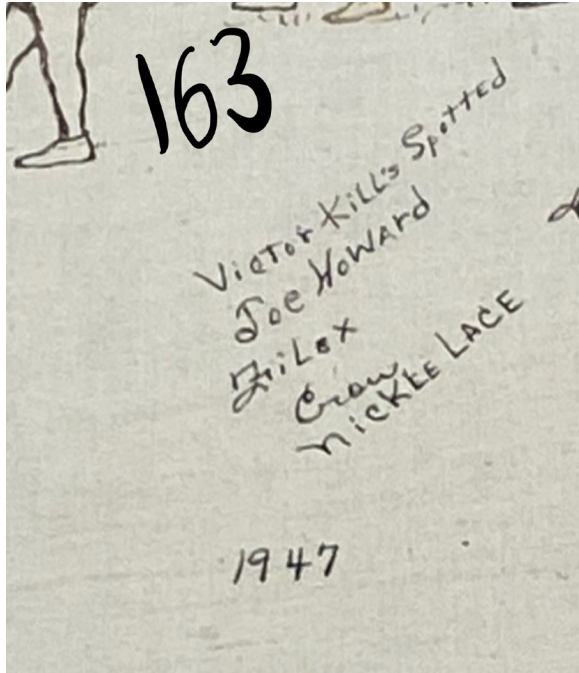 163
Victor Kill's Spotted
Joe Howard
Zilex
Crow
NiCKLE LACE
1947